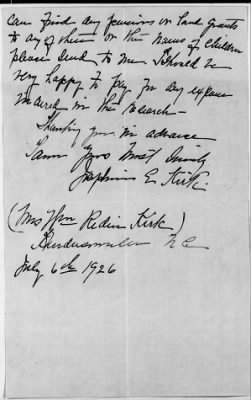 can find any pensions or land grants
to any of them or the names of children
please send to me. Should be
very happy to pay for any expense
incurred in this research -
Thanking you in advance
I am yours most sincerely
Josephine E Kirk.
(Mrs Wm Redin Kirk)
Hendersonville N C
July 6th 1926